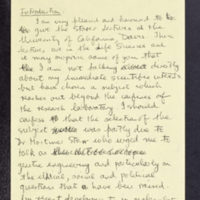 Introduction
I am very pleased and honoured to
give the Storer lectures at the
University of California Davis. These
lectures are in the Life Sciences and
it may surprise some of you that
I am not talking directly
about my immediate scientific work
but have a subject which
reaches out beyond the confines of
the research laboratory. I should
confess that the selection of the
subject was partly due to
Dr Hortense Stow who urged me to
talk on
genetic engineering and particularly on
the ethical, social and political
questions that have been raised
by recent developments in